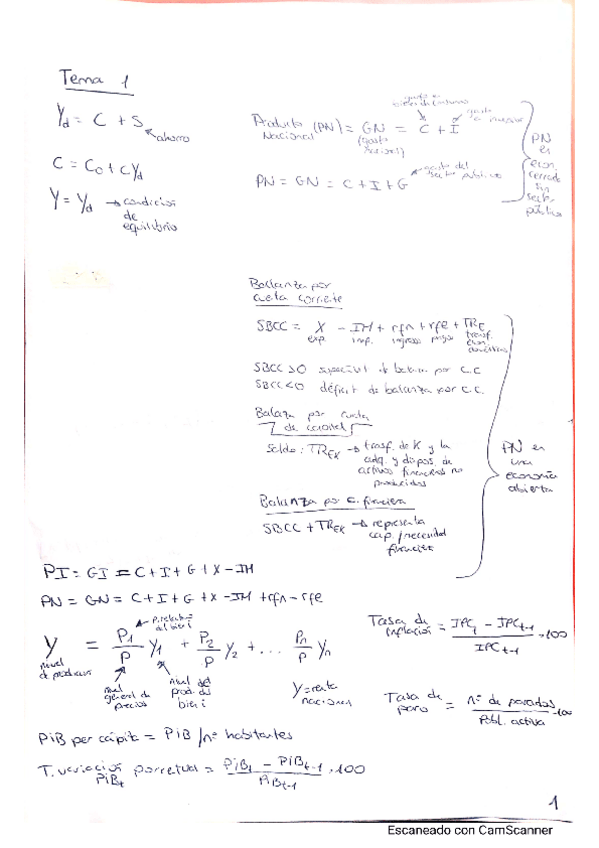 Tema 1
Yd = C + S
ahorro
C = C0 + cYd
Y = Yd → condición de equilibrio
gasto en bienes de consumo
Producto Nacional (PN) = GN = C + I
(gasto nacional)
PN = GN = C + I + G
gasto del sector público
PN en econ. cerrada sin sector público
Balanza por cuenta corriente
SBCC = X - IM + rfn + rfe + TRE
exp. imp. ingresos pagos transf.
SBCC > 0 superávit de balanza por C.C
SBCC < 0 déficit de balanza por C.C.
Balanza por cuenta de capital
Saldo: TREK → trasf. de K y la adq. y dispos. de activos financieros no producidos
Balanza por c. financiera
SBCC + TREK → representa cap./necesidad financiación
PN en una economía abierta
PI = GI = C + I + G + X - IM
PN = GN = C + I + G + X - IM + rfn - rfe
Y = P1/P Y1 + P2/P Y2 + ... Pn/P Yn
nivel de producción
P. relativo del bien i
nivel general de precios
nivel del prod. del bien i
Y = renta nacional
Tasa de inflación = IPCt - IPCt-1 / IPCt-1 · 100
Tasa de paro = nº de parados / Pobl. activa · 100
PiB per cápita = PiB / nº habitantes
T. variación porcetual PiBt = PiBt - PiBt-1 / PiBt-1 · 100
1
Escaneado con CamScanner